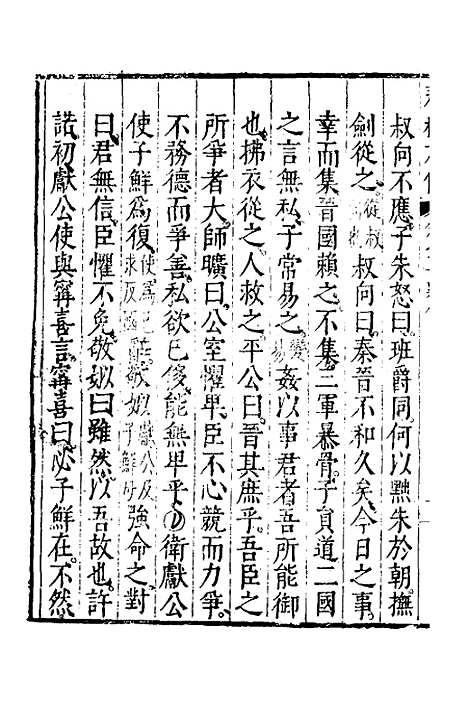 叔向不應。子朱怒曰。班爵同。何以黜朱於朝。撫
劍從之。從叔向叔向曰。秦晉不和久矣。今日之事。
幸而集。晉國賴之。不集。三軍暴骨。子員道二國
之言無私。子常易之。變易姦以事君者。吾所能御
也。拂衣從之。人救之。平公曰。晉其庶乎。吾臣之
所爭者大。師曠曰。公室懼卑。臣不心競而力爭。
不務德而爭善。私欲已侈。能無卑乎。○衛獻公
使子鮮爲復。使爲己求反國辭。敬姒獻公及子鮮母強命之。對
曰。君無信。臣懼不免。敬姒曰。雖然。以吾故也。許
諾。初。獻公使與甯喜言。甯喜曰。必子鮮在。不然